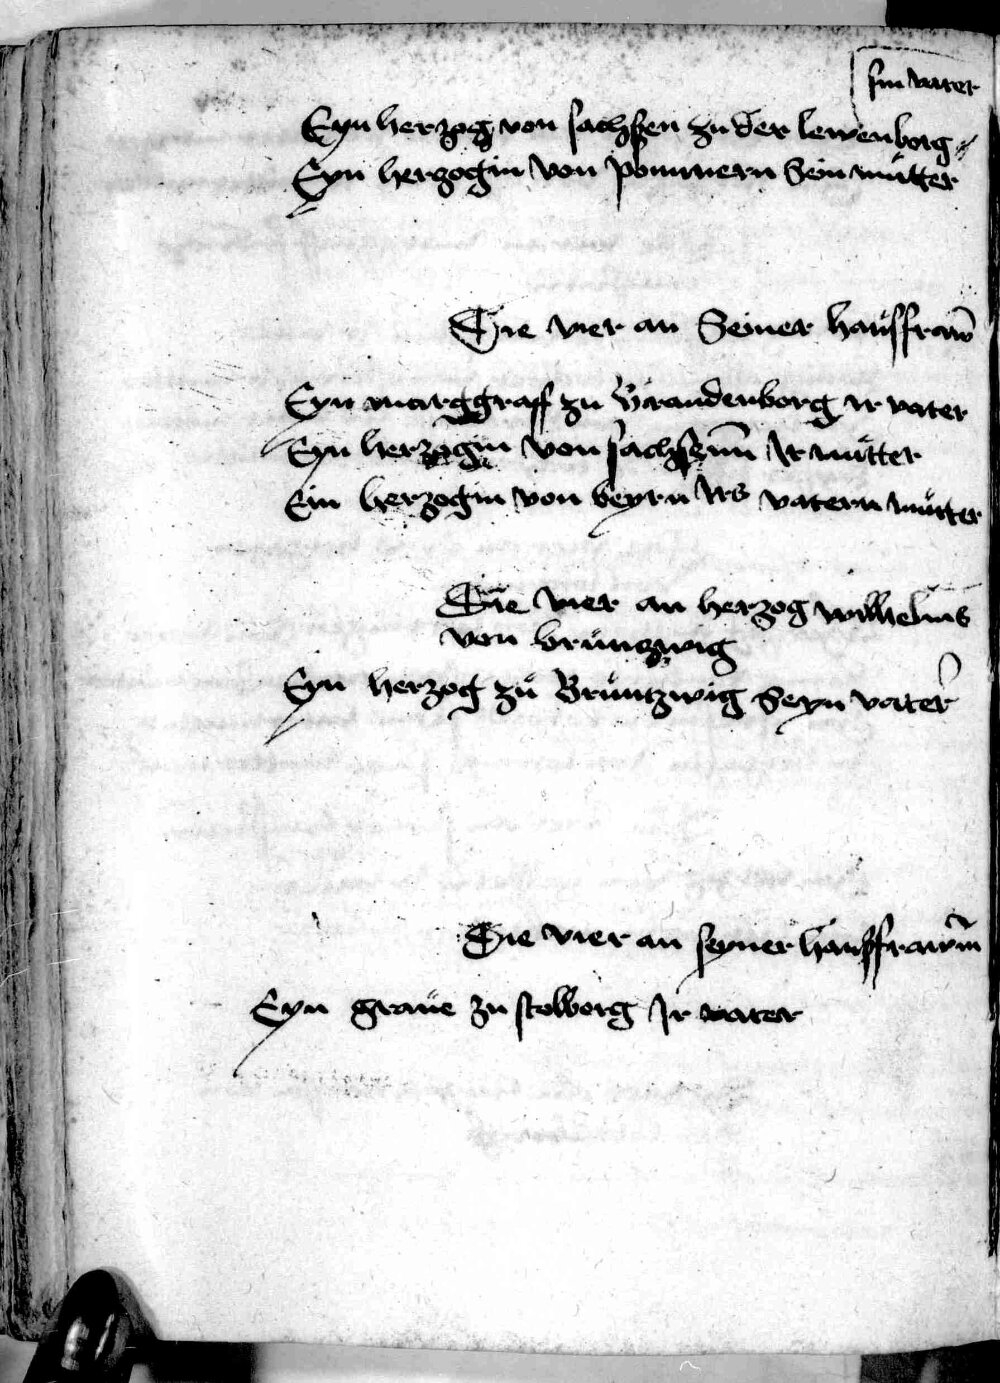 sin vater
Eyn herzog von sachssen zu der lewenborg
Eyn herzogin von pommern Sein mütter
Die vier an Seiner haüsfraw̄
Eyn marggraff zu Brandenborg ir vater
Eyn herzogin von sachssēn Ir mütter
Ein herzogin von beyrn Irs vatern mütter
Die vier an herzog wilhelms
von brüntzwig
Eyn herzog zü Brüntzwig Seyn vater
Die vier an seyner haüsfrawin
Eyn graüe zu stolborg Ir vater